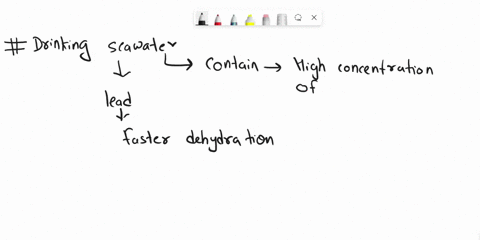 # Drinking seawater
Contain → High concentration
of
lead
faster dehydration